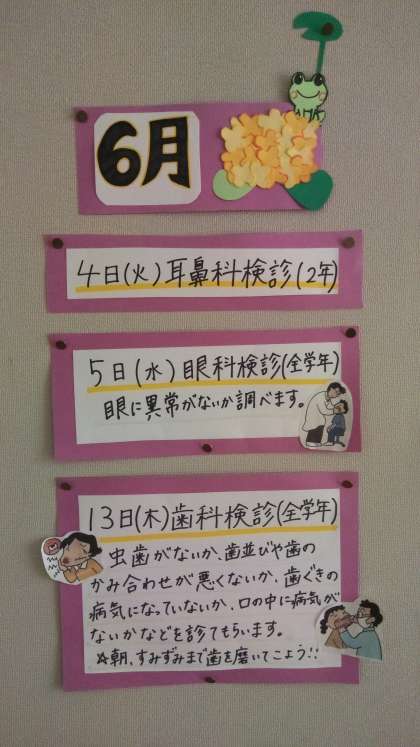 6月
4日(火)耳鼻科検診(2年)
5日(水)眼科検診(全学年)
眼に異常がないか調べます。
13日(木)歯科検診(全学年)
虫歯がないか、歯並びや歯の
かみ合わせが悪くないか、歯ぐきの
病気になっていないか、口の中に病気が
ないかなどを診てもらいます。
☆朝、すみずみまで歯を磨いてこよう!!